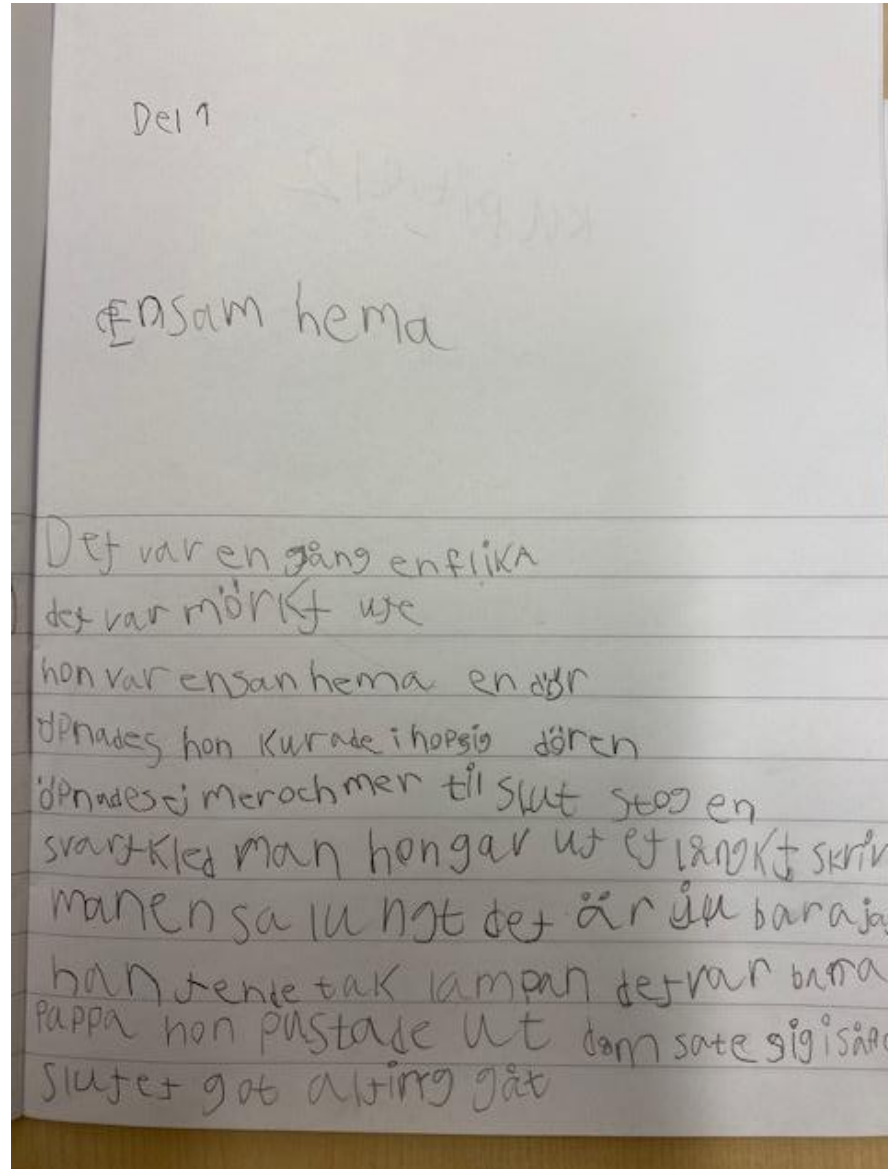 Del 1
Ensam hema
Det var en gång enflika
det var mörkt ute
hon var ensan hema en dör
öpnades hon kurade ihopsig dören
öpnadesej merochmer til slut stog en
svartkled man hongav ut et långkt skrik
manen sa lungt det är ju bara ja
han tende tak lampan detvar bara
Pappa hon pustade ut dom sate sig i
slutet got alting gåt